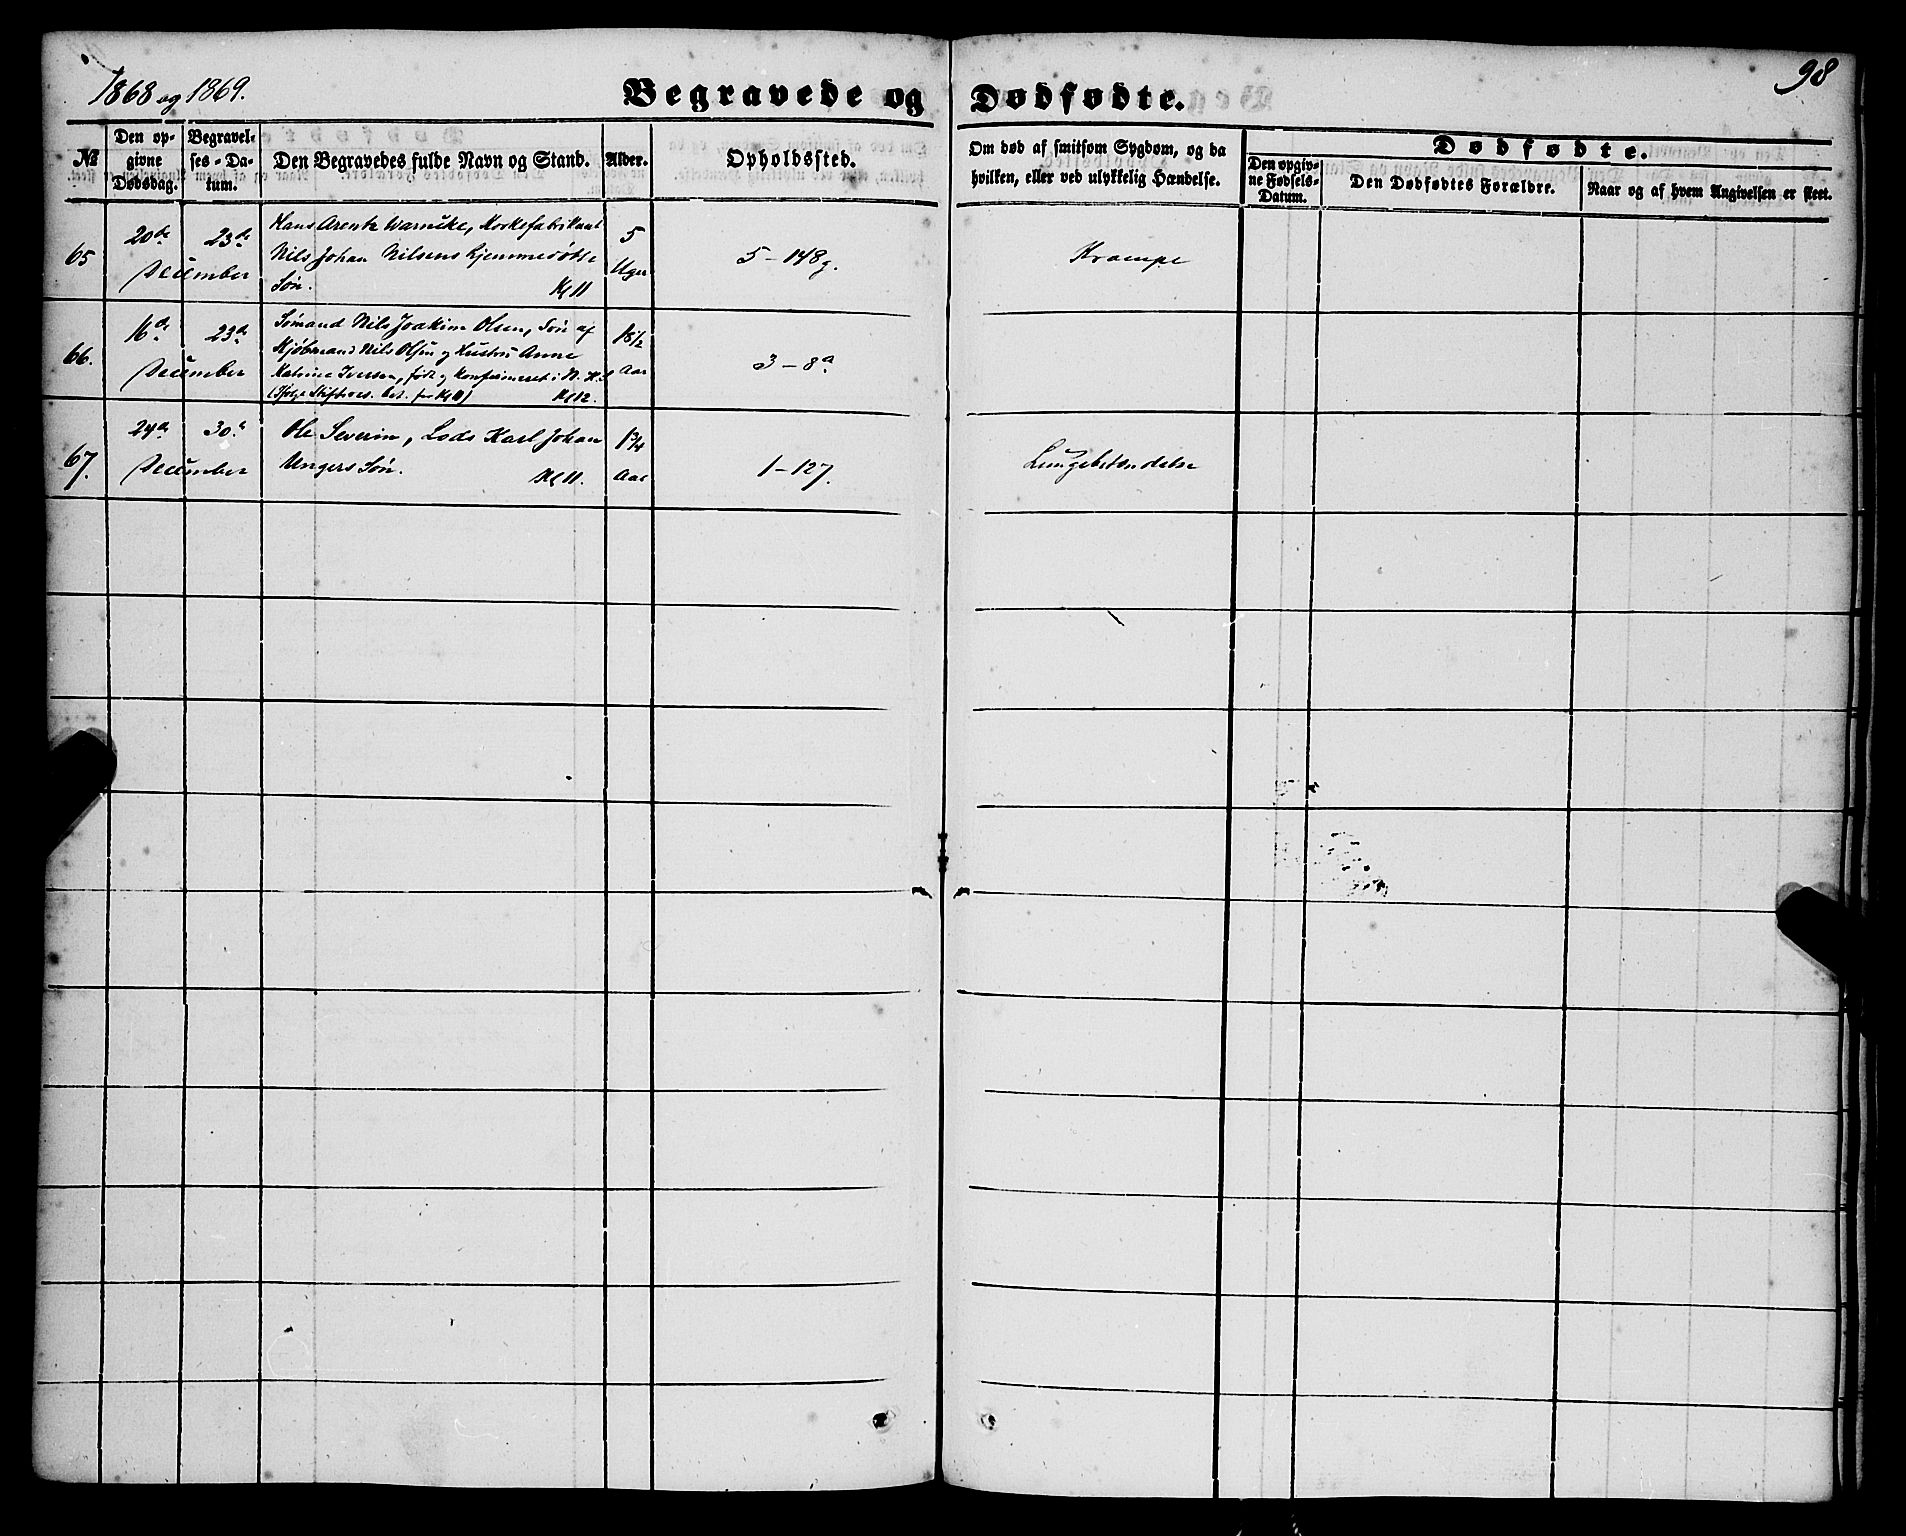 1868 og 1869.
Begravede og Dødfødte.
98
№
Den op-
givne
Dødsdag.
Begravel-
ses-Da-
tum.
Den Begravedes fulde Navn og Stand.
Alder.
Opholdssted.
Om død af smitsom Sygdom, og da
hvilken, eller ved ulykkelig Hændelse.
Dødfødte.
Den opgiv-
ne Fødsels-
Datum.
Den Dødfødtes Forældre.
Naar og af hvem Angivelsen er skeet.
65
20de
23de
December
Hans Arentz Warncke, Korkefabrikant
Nils Johan Nilsens hjemmedøbte
Søn. Kl 11
5
Uger
5 - 148g.
Krampe
66.
16de
23de
December
Sømand Nils Joakim Olsen, Søn af
Kjøbmand Nils Olsen og Hustru Anne
Katrine Iversen, født og konfirmeret i N. K.
Kl 12.
18 1/2
Aar
3 - 8a
67.
24de
30te
December
Ole Severin, Lods Karl Johan
Ungers Søn. Kl 11.
1 3/4
Aar
1 - 127.
Lungebetændelse